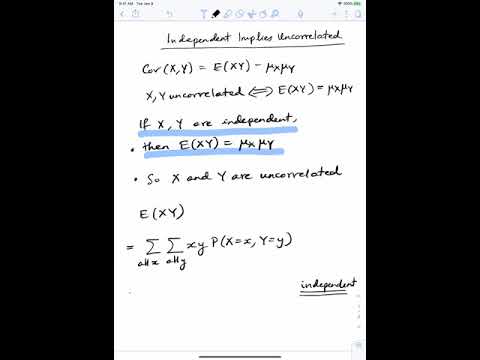 Independent Implies Uncorrelated
Cov(X,Y) = E(XY) − μₓμᵧ
X, Y uncorrelated ⟺ E(XY) = μₓμᵧ
If X, Y are independent,
• then E(XY) = μₓμᵧ
• So X and Y are uncorrelated
E(XY)
= ∑ all x ∑ all y xy P(X=x, Y=y)
independent